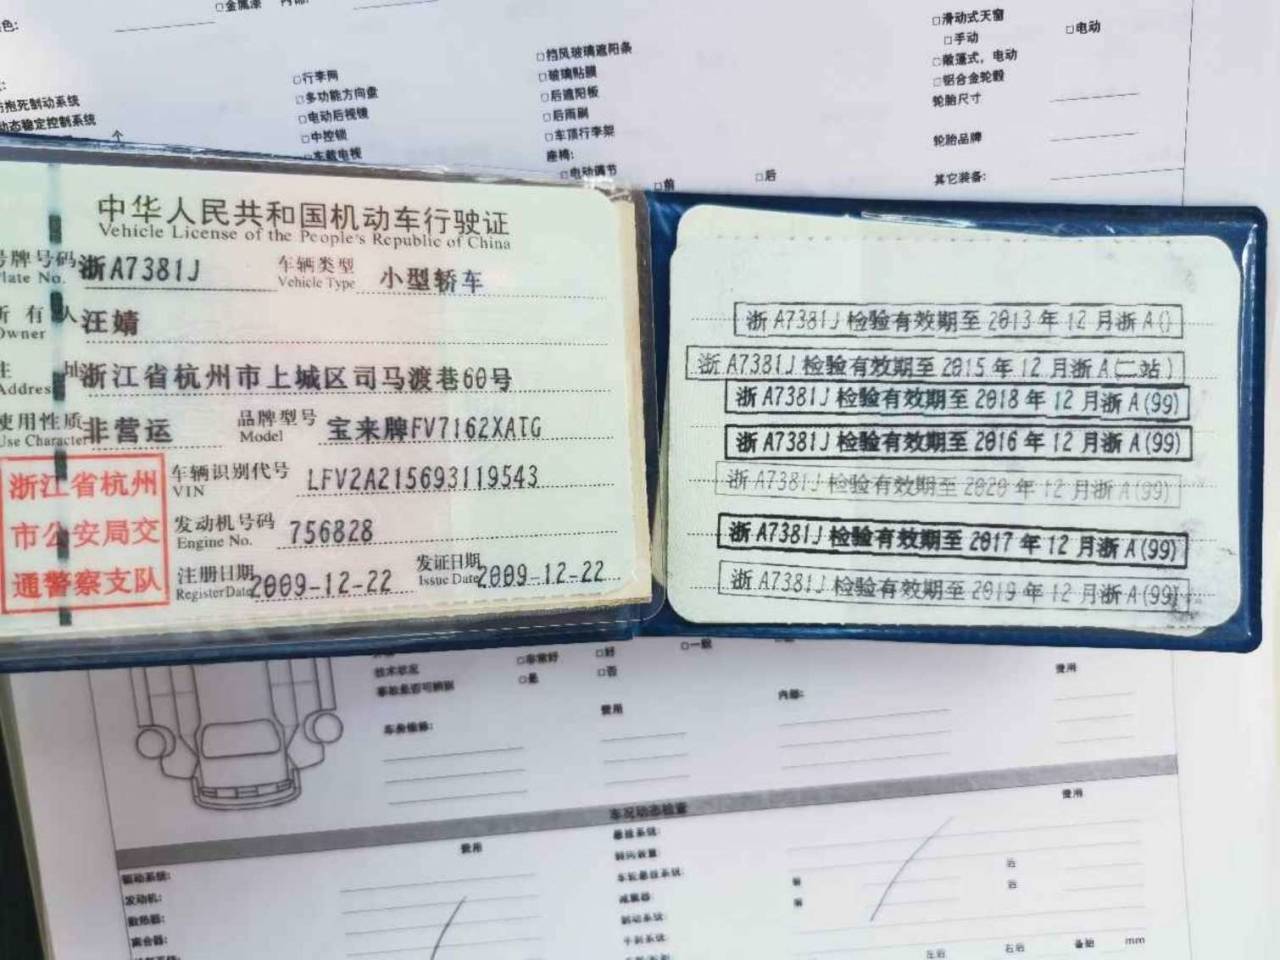 □金属漆
□滑动式天窗
□手动 □电动
□敞篷式，电动
□铝合金轮毂
轮胎尺寸
轮胎品牌
其它装备:
□挡风玻璃遮阳条
□玻璃贴膜
□后遮阳板
□后雨刷
□车顶行李架
座椅:
□电动调节 □前 □后
□行李网
□多功能方向盘
□电动后视镜
□中控锁
□车载电视
防抱死制动系统
动态稳定控制系统
中华人民共和国机动车行驶证
Vehicle License of the People's Republic of China
号牌号码 浙A7381J 车辆类型 小型轿车
Plate No. Vehicle Type
所有人 汪婧
Owner
住址 浙江省杭州市上城区司马渡巷60号
Address
使用性质 非营运 品牌型号 宝来牌FV7162XATG
Use Character Model
车辆识别代号 LFV2A215693119543
VIN
发动机号码 756828
Engine No.
注册日期 2009-12-22 发证日期 2009-12-22
Register Date Issue Date
浙江省杭州
市公安局交
通警察支队
浙A7381J检验有效期至2013年12月浙A()
浙A7381J检验有效期至2015年12月浙A(二站)
浙A7381J检验有效期至2018年12月浙A(99)
浙A7381J检验有效期至2016年12月浙A(99)
浙A7381J检验有效期至2020年12月浙A(99)
浙A7381J检验有效期至2017年12月浙A(99)
浙A7381J检验有效期至2019年12月浙A(99)
技术状况 □非常好 □好 □一般
事故是否可辨别 □是 □否
费用
车身维修: 费用 内部:
车况动态检查
费用 费用
驱动系统:
发动机:
散热器:
离合器:
悬挂系统:
转向装置:
车轮悬挂系统: 前 后
减震器: 前 后
制动系统:
手刹系统:
左后 右后 备胎 mm